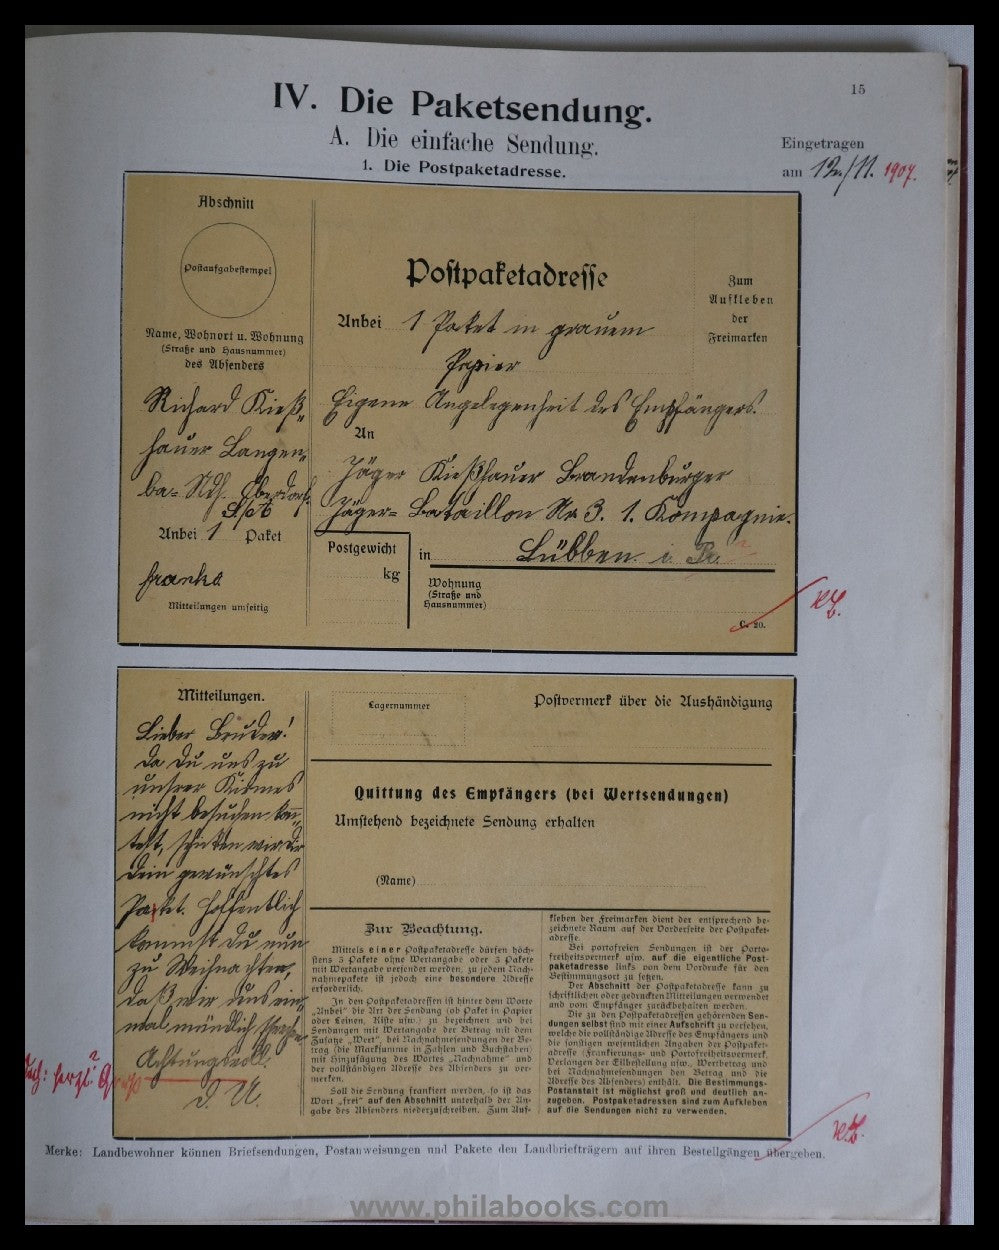 15
IV. Die Paketsendung.
A. Die einfache Sendung.
1. Die Postpaketadresse.
Eingetragen
am 12./11. 1907.
Abschnitt
Postaufgabestempel
Name, Wohnort u. Wohnung
(Straße und Hausnummer)
des Absenders
Richard Kieß-
hauer Langen-
ba- Ndh. Oberdorf
Anbei 1 Paket
franko
Mitteilungen umseitig
Postpaketadresse
Zum
Aufkleben
der
Freimarken
Anbei 1 Paket in grauem
Papier
Eigene Angelegenheit des Empfängers.
An
Jäger Kießhauer Brandenburger
Jäger- Bataillon Nr. 3. 1. Kompagnie.
Postgewicht
kg
in Lübben i. Pr. ?
Wohnung
(Straße und
Hausnummer)
C. 20.
Mitteilungen.
Lieber Bruder!
Da Du uns zu
unsrer Kirmes
nicht besuchen konn-
test, schicken wir Dir
Dein gewünschtes
Paket. Hoffentlich
kommst Du nun
zu Weihnachten,
daß wir uns ein-
mal mündlich
Achtungsvoll.
D. U.
Lagernummer
Postvermerk über die Aushändigung
Quittung des Empfängers (bei Wertsendungen)
Umstehend bezeichnete Sendung erhalten
(Name)
Zur Beachtung.
Mittels einer Postpaketadresse dürfen höch-
stens 3 Pakete ohne Wertangabe oder 3 Pakete
mit Wertangabe versendet werden, zu jedem Nach-
nahmepakete ist jedoch eine besondere Adresse
erforderlich.
In den Postpaketadressen ist hinter dem Worte
„Anbei" die Art der Sendung (ob Paket in Papier
oder Leinen, Kiste usw.) zu bezeichnen und bei
Sendungen mit Wertangabe der Betrag mit dem
Zusatze „Wert", bei Nachnahmesendungen der Be-
trag (die Marksumme in Zahlen und Buchstaben)
mit Hinzufügung des Wortes „Nachnahme" und
der vollständigen Adresse des Absenders zu ver-
merken.
Soll die Sendung frankiert werden, so ist das
Wort „frei" auf den Abschnitt unterhalb der An-
gabe des Absenders niederzuschreiben. Zum Auf-
kleben der Freimarken dient der entsprechend be-
zeichnete Raum auf der Vorderseite der Postpaket-
adresse.
Bei portofreien Sendungen ist der Porto-
freiheitsvermerk usw. auf die eigentliche Post-
paketadresse links von dem Vordrucke für den
Bestimmungsort zu setzen.
Der Abschnitt der Postpaketadresse kann zu
schriftlichen oder gedruckten Mitteilungen verwendet
und vom Empfänger zurückbehalten werden.
Die zu den Postpaketadressen gehörenden Sen-
dungen selbst sind mit einer Aufschrift zu versehen,
welche die vollständige Adresse des Empfängers und
die sonstigen wesentlichen Angaben der Postpaket-
adresse (Frankierungs- und Portofreiheitsvermerk,
Verlangen der Eilbestellung usw., Wertbetrag und
bei Nachnahmesendungen den Betrag und die
Adresse des Absenders) enthält. Die Bestimmungs-
Postanstalt ist möglichst groß und deutlich an-
zugeben. Postpaketadressen sind zum Aufkleben
auf die Sendungen nicht zu verwenden.
Merke: Landbewohner können Briefsendungen, Postanweisungen und Pakete den Landbriefträgern auf ihren Bestellgängen übergeben.
www.philabooks.com